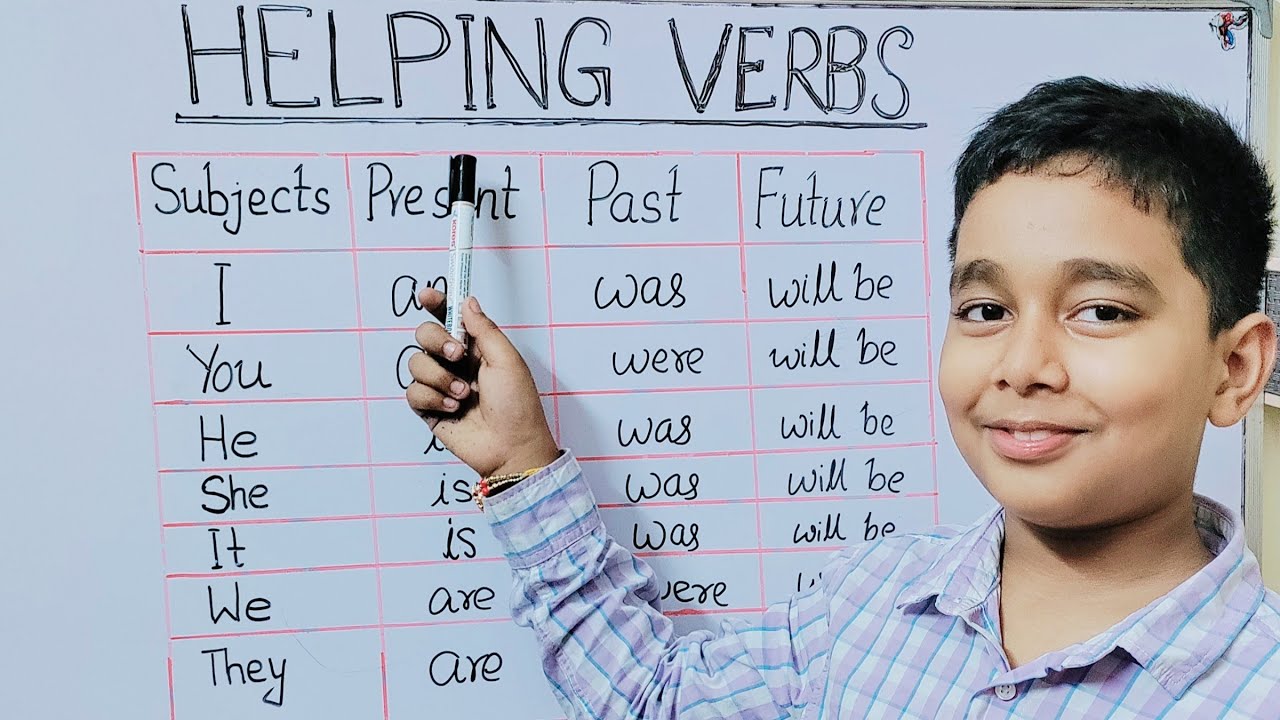 HELPING VERBS
Subjects Present Past Future
I was will be
You were will be
He was will be
She is was will be
It is was will be
We are were
They are